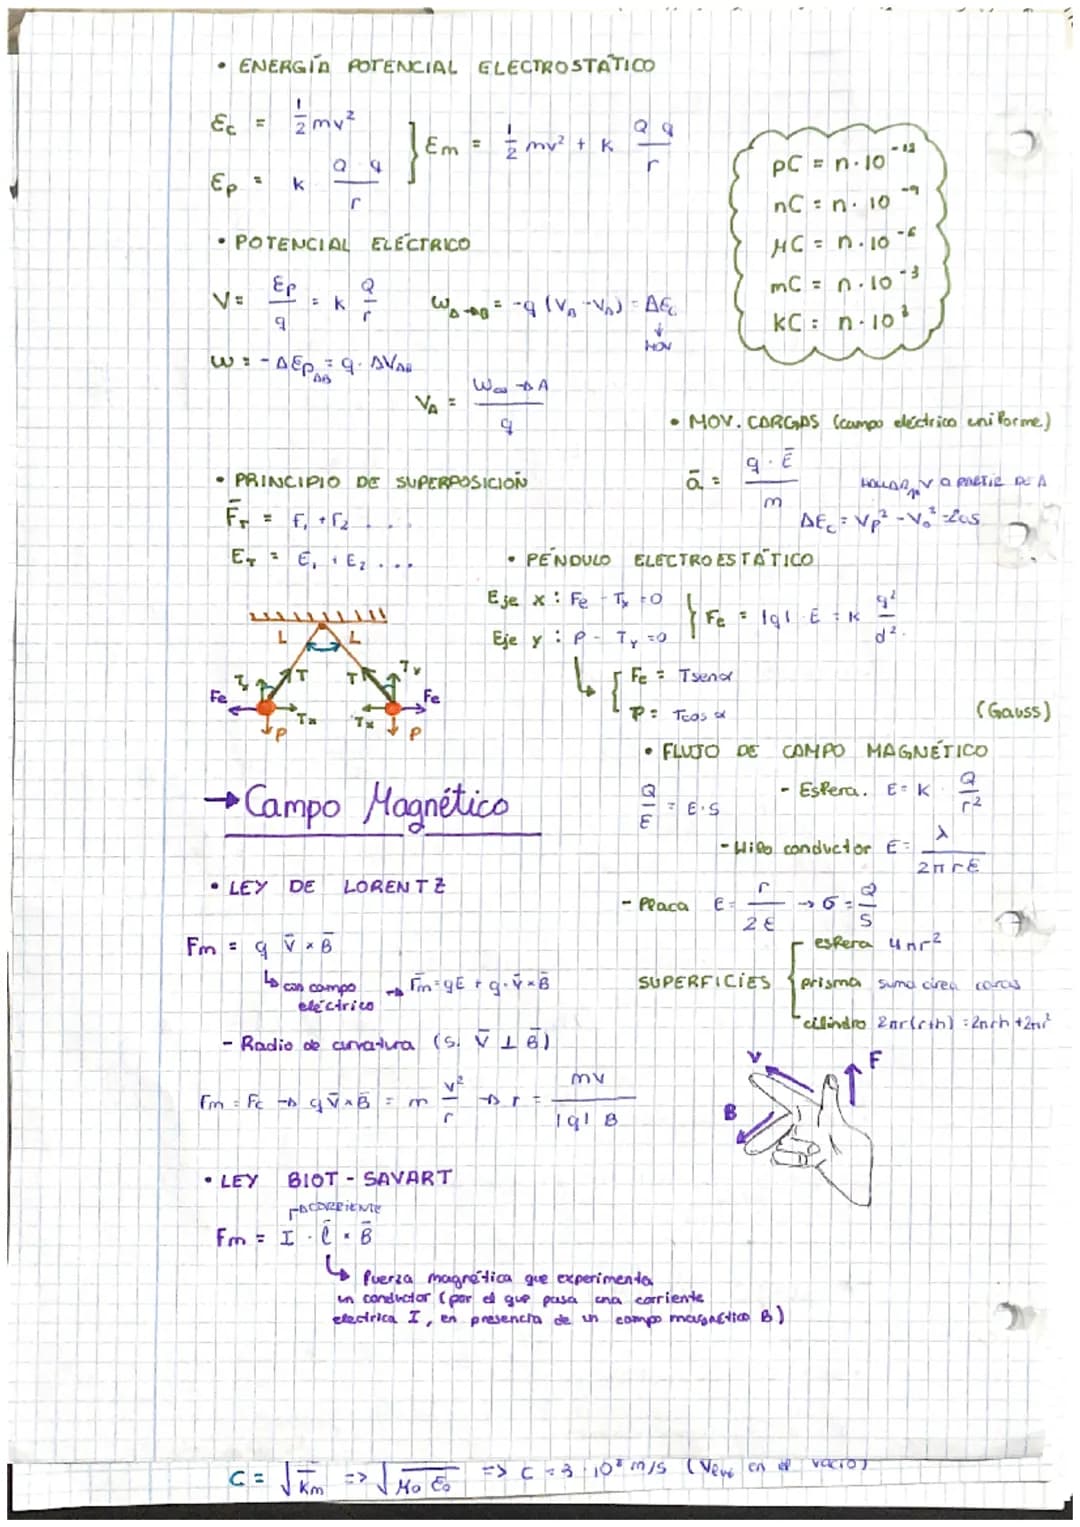 • ENERGÍA POTENCIAL ELECTROSTÁTICO
Ec = 1/2 mv²
Ep = k Q q / r
} Em = 1/2 mv² + k Q q / r
pC = n·10⁻¹²
nC = n·10⁻⁹
μC = n·10⁻⁶
mC = n·10⁻³
kC = n·10³
• POTENCIAL ELÉCTRICO
V = Ep / q = k Q / r
W A→B = -q (V_B - V_A) = ΔEc
↓
MOV
W = -ΔEp AB = q · ΔV AB
V_A = W∞→A / q
• MOV. CARGAS (campo eléctrico uniforme)
ā = q · Ē / m
HALLAR V A PARTIR DE A
ΔEc = Vp² - Vo² = 2as
• PRINCIPIO DE SUPERPOSICIÓN
F̄T = F1 + F2 ...
ET = E1 + E2 ...
• PÉNDULO ELECTROESTÁTICO
Eje x : Fe - Tx = 0
Eje y : P - Ty = 0
} Fe = |q| · E = K q² / d²
Fe = Tsenα
P = Tcos α
L L
T T Ty
Ty
Fe Fe
Tx Tx
P P
(Gauss)
• FLUJO DE CAMPO MAGNÉTICO
Q / E = E·S
- Esfera. E = K · Q / r²
- Hilo conductor E = λ / 2πrε
- Placa E = r / 2ε → σ = Q / S
SUPERFICIES
esfera 4πr²
prisma suma área caras
cilindro 2πr(r+h) = 2πrh + 2πr²
→ Campo Magnético
• LEY DE LORENTZ
Fm = q V̄ × B̄
↳ con campo eléctrico → F̄m = qE + q·v̄×B̄
- Radio de curvatura (si V̄ ⊥ B̄)
Fm = Fc → q v̄×B̄ = m v² / r → r = mv / |q| B
V
F
B
• LEY BIOT - SAVART
→CORRIENTE
Fm = I · l̄ × B̄
↳ fuerza magnética que experimenta
un conductor (por el que pasa una corriente
electrica I, en presencia de un campo magnético B)
C = √K/Km => √ μ₀ ε₀ => C = 3·10⁸ m/s ( en el vacío)